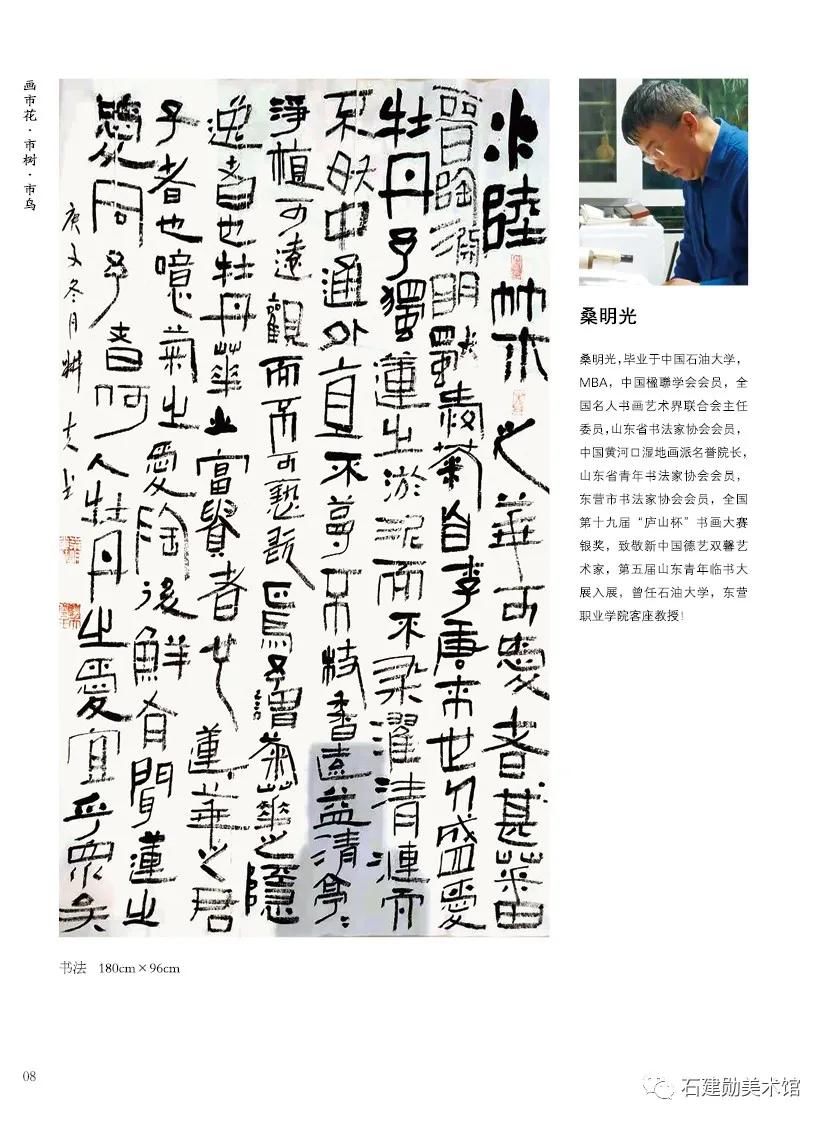 画市花·市树·市鸟
水陸艸木之華可愛者甚蕃
晉陶淵明獨愛菊自李唐來世人盛愛
牡丹予獨蓮之淤泥而不染濯清漣而
不妖中通外直不蔓不枝香遠益清亭:
淨植可遠觀而不可褻翫焉予謂菊華之隱
逸者也牡丹華之富貴者也蓮華之君
子者也噫菊之愛陶後鮮有聞蓮之
愛同予者何人牡丹之愛宜乎眾矣
庚子冬月耕夫书
桑明光
桑明光，毕业于中国石油大学，
MBA，中国楹聯学会会员，全
国名人书画艺术界联合会主任
委员，山东省书法家协会会员，
中国黄河口湿地画派名誉院长，
山东省青年书法家协会会员，
东营市书法家协会会员，全国
第十九届“庐山杯”书画大赛
银奖，致敬新中国德艺双馨艺
术家，第五届山东青年临书大
展入展，曾任石油大学，东营
职业学院客座教授！
书法 180cm×96cm
08
石建勋美术馆